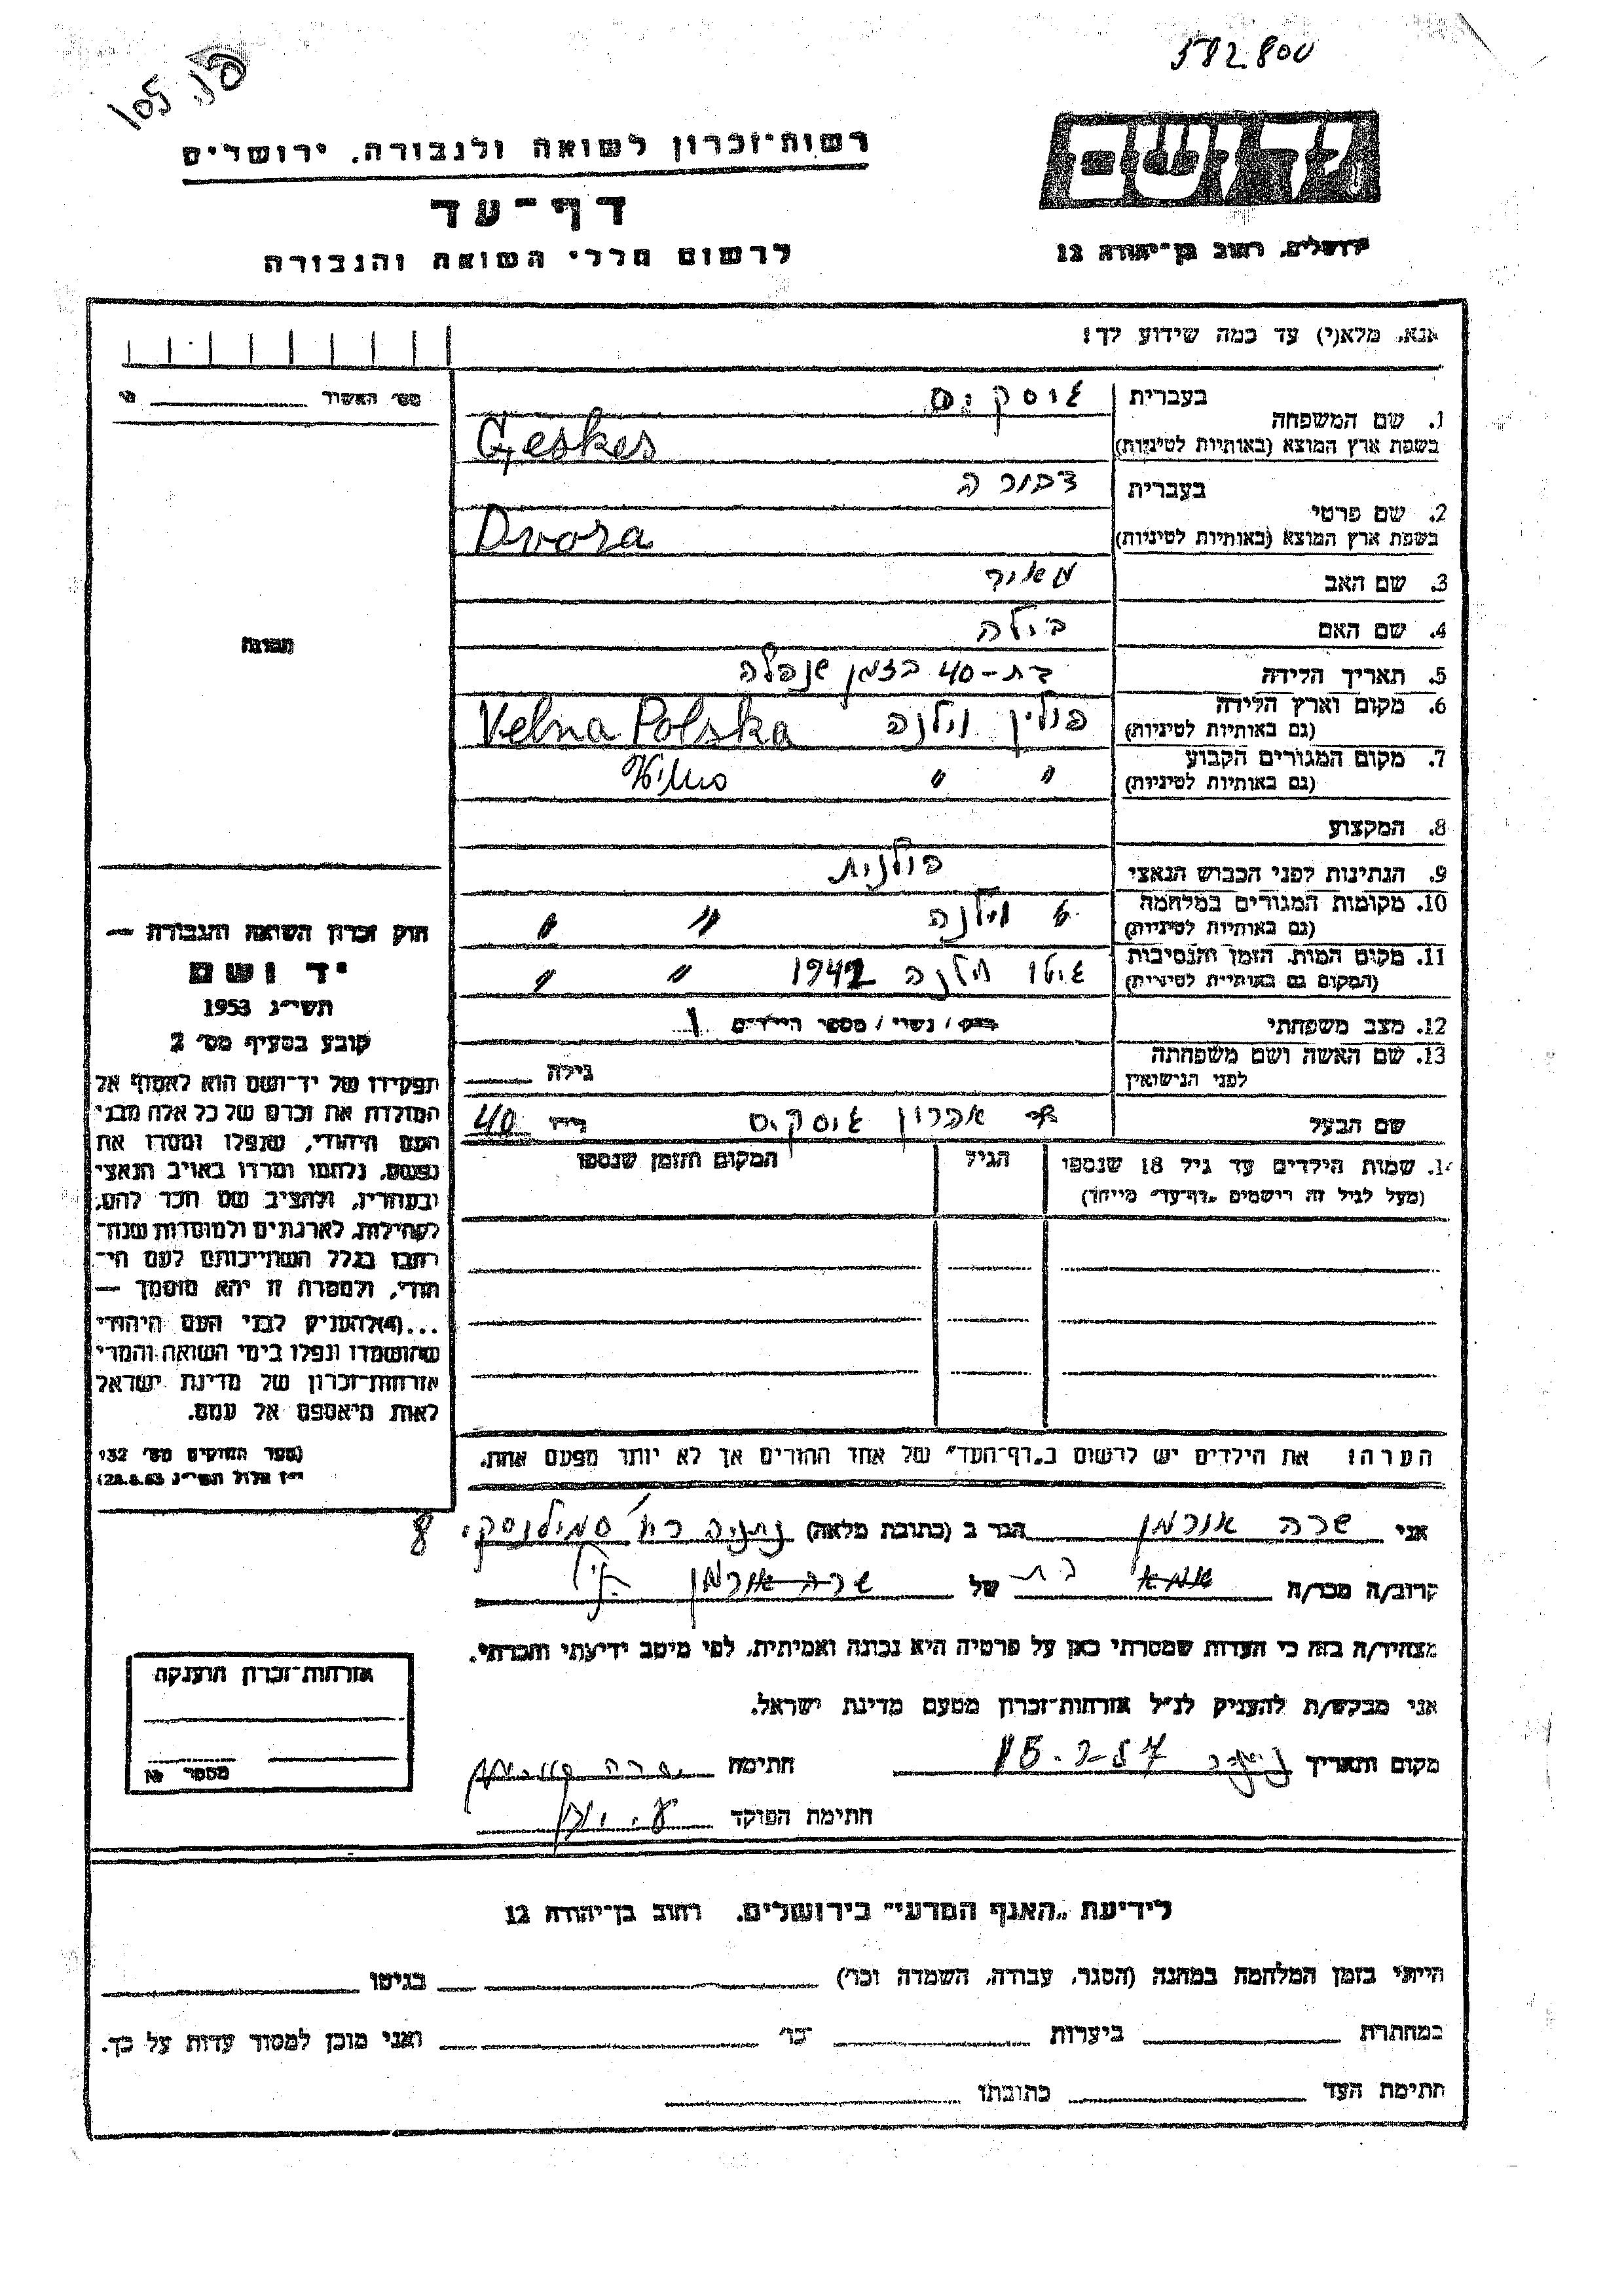 582800
רשות־זכרון לשואה ולגבורה, ירושלים
דף־עד
לרשום חללי השואה והגבורה
יד ושם
ירושלים, רחוב בן־יהודה 12
אנא, מלא(י) עד כמה שידוע לך!
מס׳ האשור
1. שם המשפחה
בעברית
גוסקס
בשפת ארץ המוצא (באותיות לטיניות)
Geskes
2. שם פרטי
בעברית
דבורה
בשפת ארץ המוצא (באותיות לטיניות)
Dvora
3. שם האב
מאיר
4. שם האם
ביילה
5. תאריך הלידה
בת-40 בזמן שנפלה
6. מקום וארץ הלידה
(גם באותיות לטיניות)
פולין וילנה Velna Polska
7. מקום המגורים הקבוע
(גם באותיות לטיניות)
" "
8. המקצוע
9. הנתינות לפני הכבוש הנאצי
פולנית
10. מקומות המגורים במלחמה
(גם באותיות לטיניות)
וילנה " "
11. מקום המות, הזמן והנסיבות
(המקום גם באותיות לטיניות)
גיטו וילנה 1942 " "
12. מצב משפחתי
רווק / נשוי / מספר הילדים 1
13. שם האשה ושם משפחתה
לפני הנישואין
גילה
שם הבעל
אהרון גוסקס
גילו 40
14. שמות הילדים עד גיל 18 שנספו
(מעל לגיל זה רושמים „דף־עד״ מיוחד)
הגיל
המקום והזמן שנספו
הערה: את הילדים יש לרשום ב„דף־העד״ של אחד ההורים אך לא יותר מפעם אחת.
תמונה
חוק זכרון השואה והגבורה —
יד ושם
תשי״ג 1953
קובע בסעיף מס׳ 2
תפקידו של יד־ושם הוא לאסוף אל
המולדת את זכרם של כל אלה מבני
העם היהודי, שנפלו ומסרו את
נפשם, נלחמו ומרדו באויב הנאצי
ובעוזריו, ולהציב שם וזכר להם,
לקהילות, לארגונים ולמוסדות שנח־
רבו בגלל השתייכותם לעם הי־
הודי, ולמטרה זו יהא מוסמך —
...(4) להעניק לבני העם היהודי
שהושמדו ונפלו בימי השואה והמרי
אזרחות־זכרון של מדינת ישראל
לאות היאספם אל עמם.
(ספר החוקים מס׳ 132
י״ז אלול תשי״ג 28.8.53)
אני שרה אורמן הגר ב (כתובת מלאה) נתניה רח׳ סמילנסקי 8
קרוב/ה מכר/ה אמא בת של שרה אורמן
מצהיר/ה בזה כי העדות שמסרתי כאן על פרטיה היא נכונה ואמיתית, לפי מיטב ידיעתי והכרתי.
אני מבקש/ת להעניק לנ״ל אזרחות־זכרון מטעם מדינת ישראל.
מקום ותאריך נתניה 15.2-57 חתימה שרה אורמן
חתימת הפוקד
אזרחות־זכרון הוענקה
מספר №
לידיעת „האגף המדעי״ בירושלים, רחוב בן־יהודה 12
הייתי בזמן המלחמה במחנה (הסגר, עבודה, השמדה וכו׳) בגיטו
במחתרת ביערות וכו׳ ואני מוכן למסור עדות על כך.
חתימת העד כתובתו